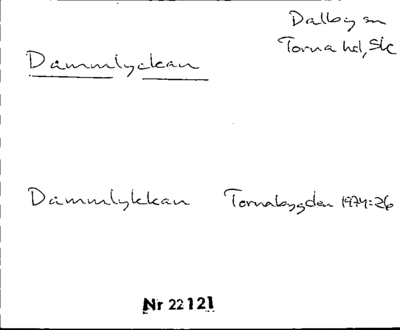 Dalby sn
Torna hd, Sk
Dammlyckan
Dammlykkan Tornabygden 1974:26
Nr 22121